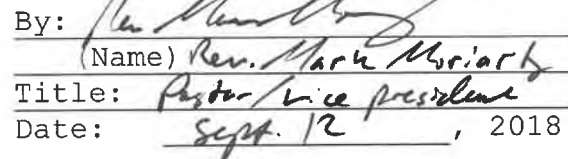 By: Rev
(Name) Rev. Mark Moriarty
Title: Pastor/vice president
Date: Sept. 12, 2018